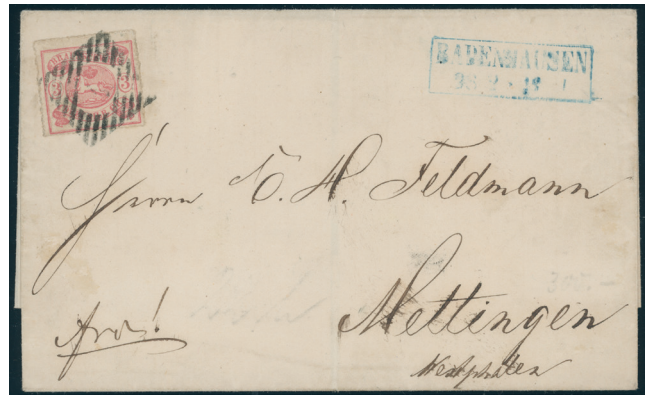 BADENHAUSEN
Herrn C. H. Feldmann
Mettingen
Westphalen